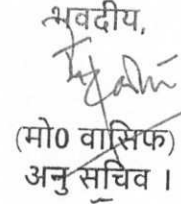 भवदीय,
(मो0 वासिफ)
अनु सचिव ।